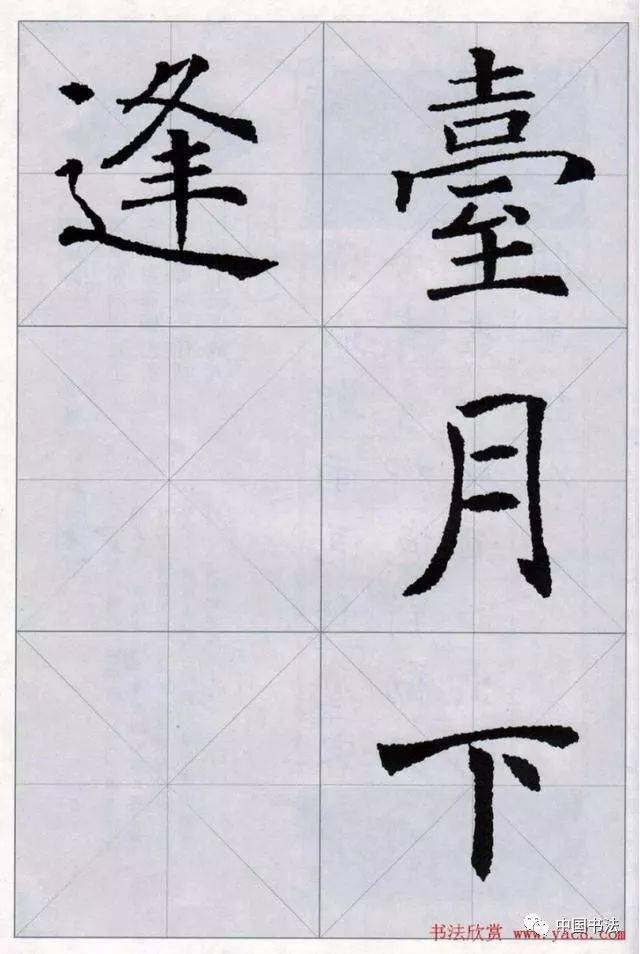 臺月下
逢
书法欣赏 www.yac8.com
中国书法